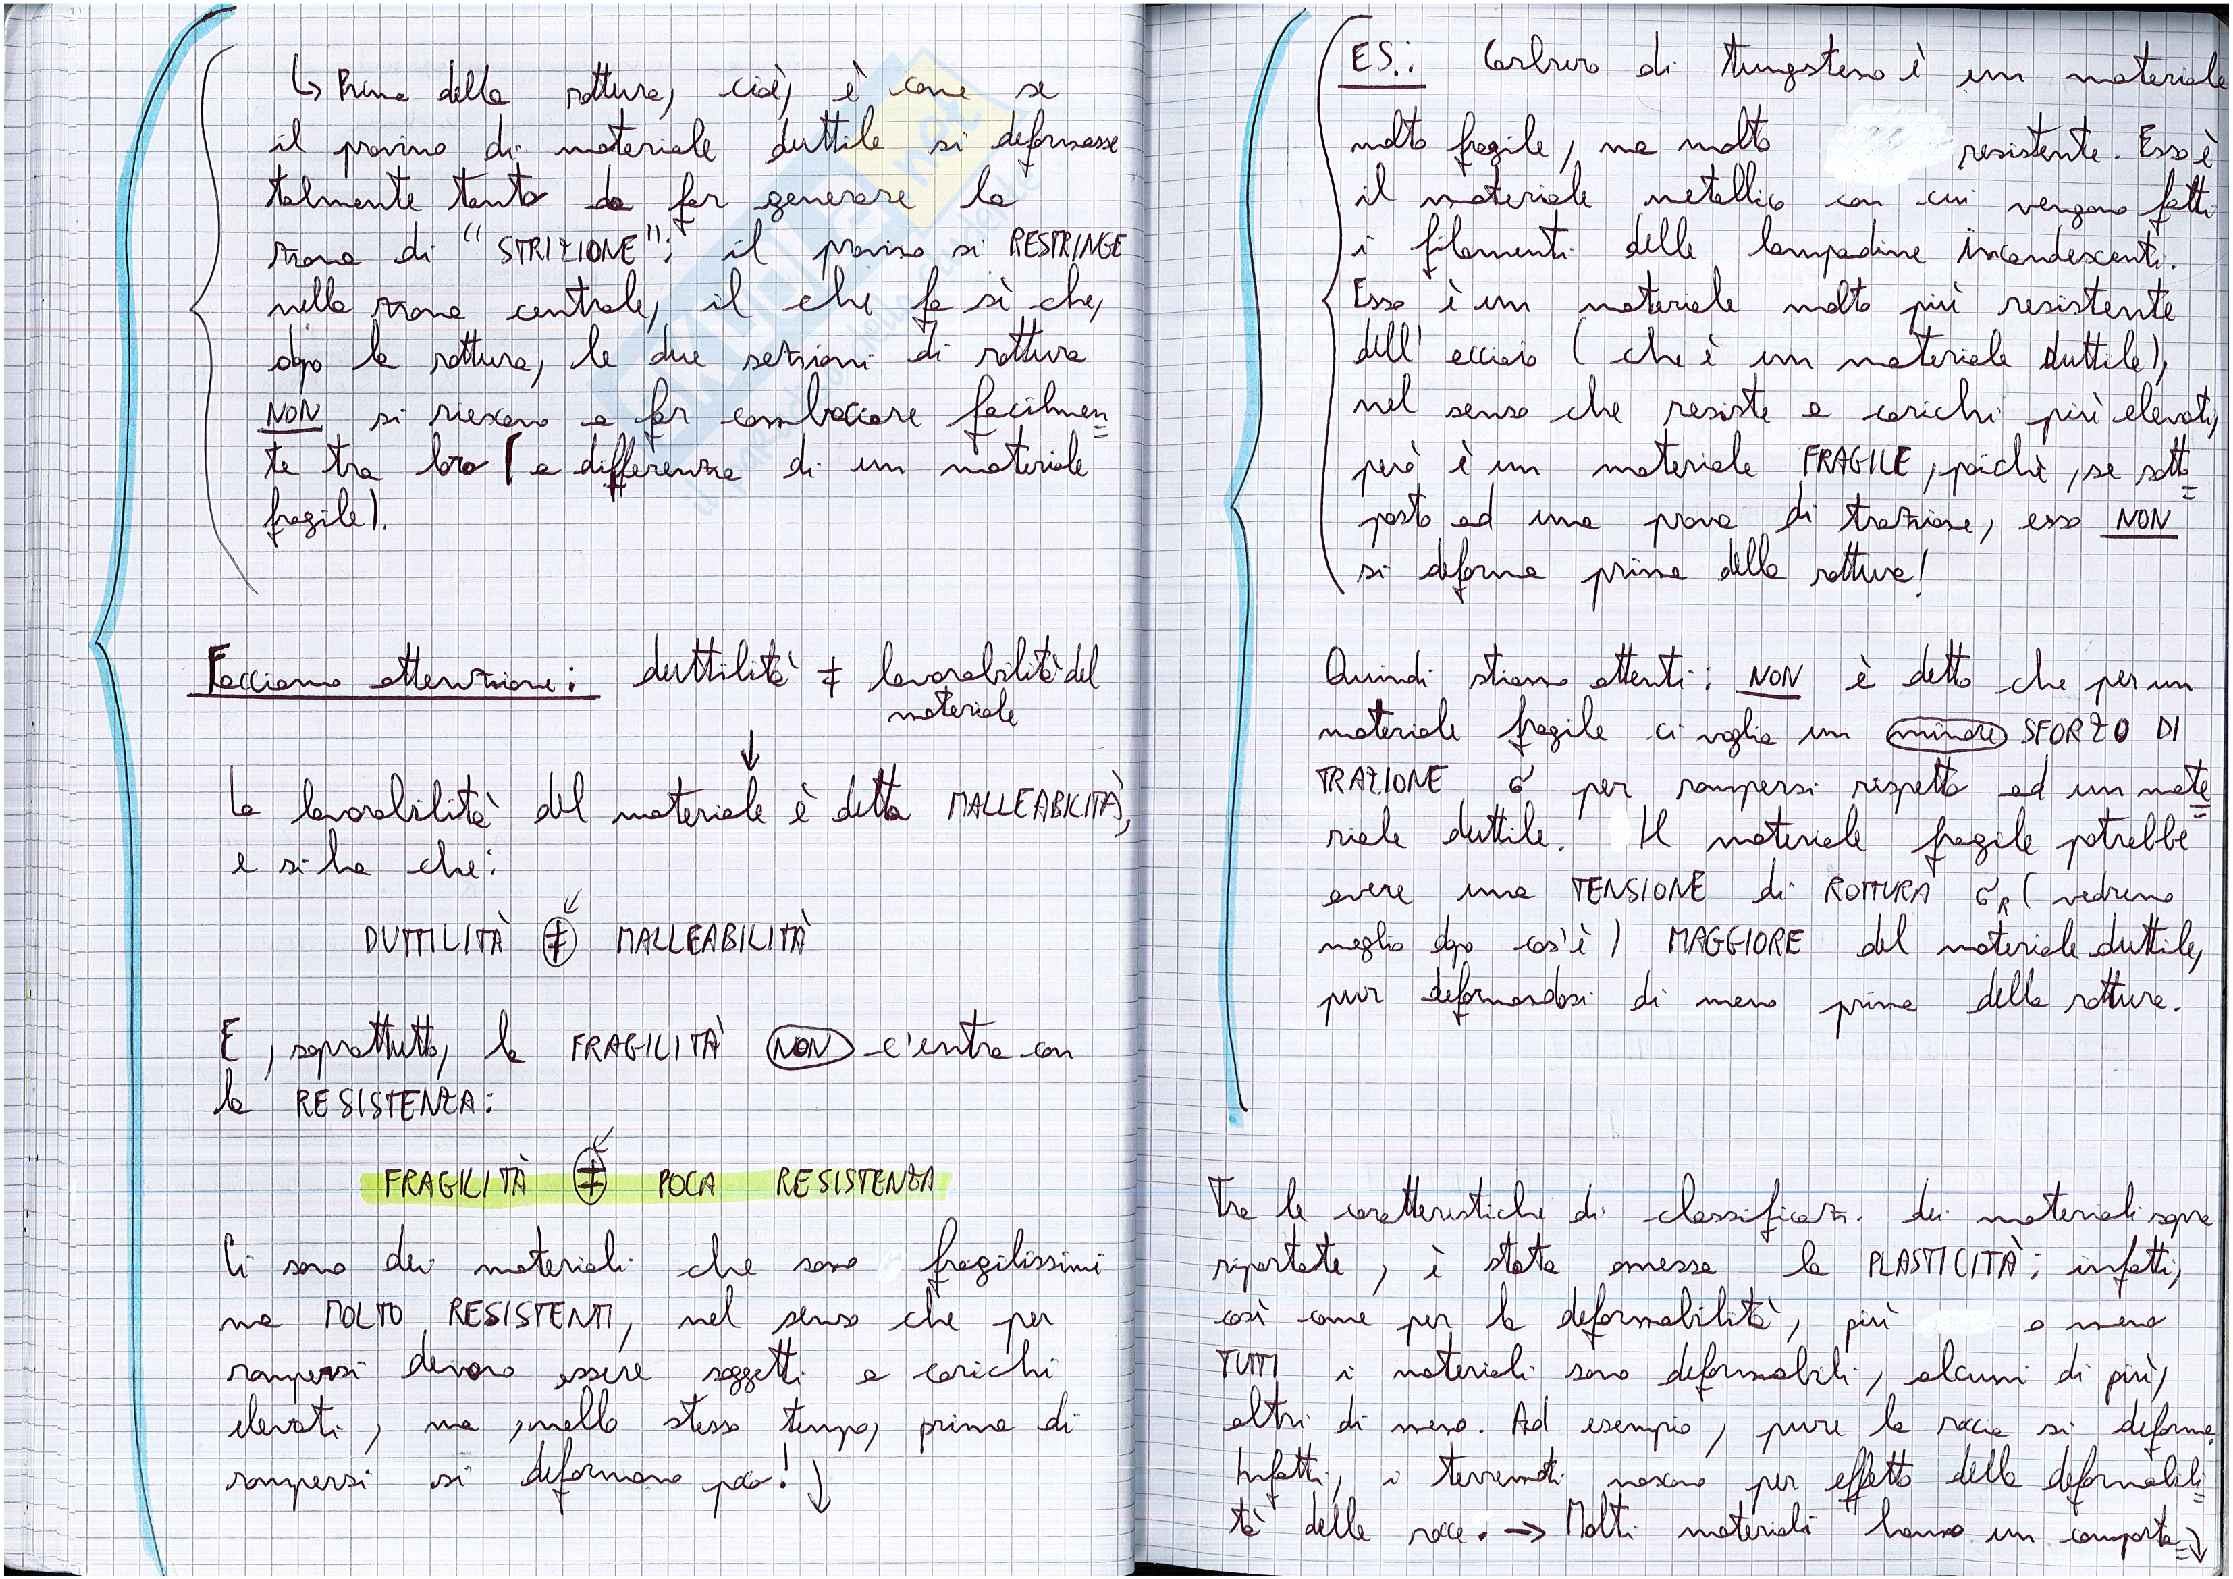 ↳ Prima della rottura, cioè, è come se
il provino di materiale duttile si deformasse
talmente tanto da far generare la
zona di "STRIZIONE"; il provino si RESTRINGE
nella zona centrale, il che fa sì che,
dopo la rottura, le due sezioni di rottura
NON si riescano a far combaciare facilmen=
te tra loro (a differenza di un materiale
fragile).
Facciamo attenzione: duttilità ≠ lavorabilità del
materiale
↓
La lavorabilità del materiale è detta MALLEABILITÀ,
e si ha che:
DUTTILITÀ ≠ MALLEABILITÀ
E, soprattutto, la FRAGILITÀ NON c'entra con
la RESISTENZA:
FRAGILITÀ ≠ POCA RESISTENZA
Ci sono dei materiali che sono fragilissimi
ma MOLTO RESISTENTI, nel senso che per
rompersi devono essere soggetti a carichi
elevati, ma, nello stesso tempo, prima di
rompersi si deformano poco! ↓
ES.: Carburo di tungsteno è un materiale
molto fragile, ma molto resistente. Esso è
il materiale metallico con cui vengono fatti
i filamenti delle lampadine incandescenti.
Esso è un materiale molto più resistente
dell'acciaio (che è un materiale duttile),
nel senso che resiste a carichi più elevati,
però è un materiale FRAGILE, poichè, se sotto=
posto ad una prova di trazione, esso NON
si deforma prima della rottura!
Quindi stiamo attenti: NON è detto che per un
materiale fragile ci voglia un minore SFORZO DI
TRAZIONE σ per rompersi rispetto ad un mate=
riale duttile. Il materiale fragile potrebbe
avere una TENSIONE di ROTTURA σR (vedremo
meglio dopo cos'è) MAGGIORE del materiale duttile,
pur deformandosi di meno prima della rottura.
Tra le caratteristiche di classificaz. dei materiali sopra
riportate, è stata omessa la PLASTICITÀ; infatti,
così come per la deformabilità, più o meno
TUTTI i materiali sono deformabili, alcuni di più,
altri di meno. Ad esempio, pure la roccia si deforma.
Infatti, i terremoti nascono per effetto della deformabili=
tà delle rocce. → Molti materiali hanno un comporta= ↓